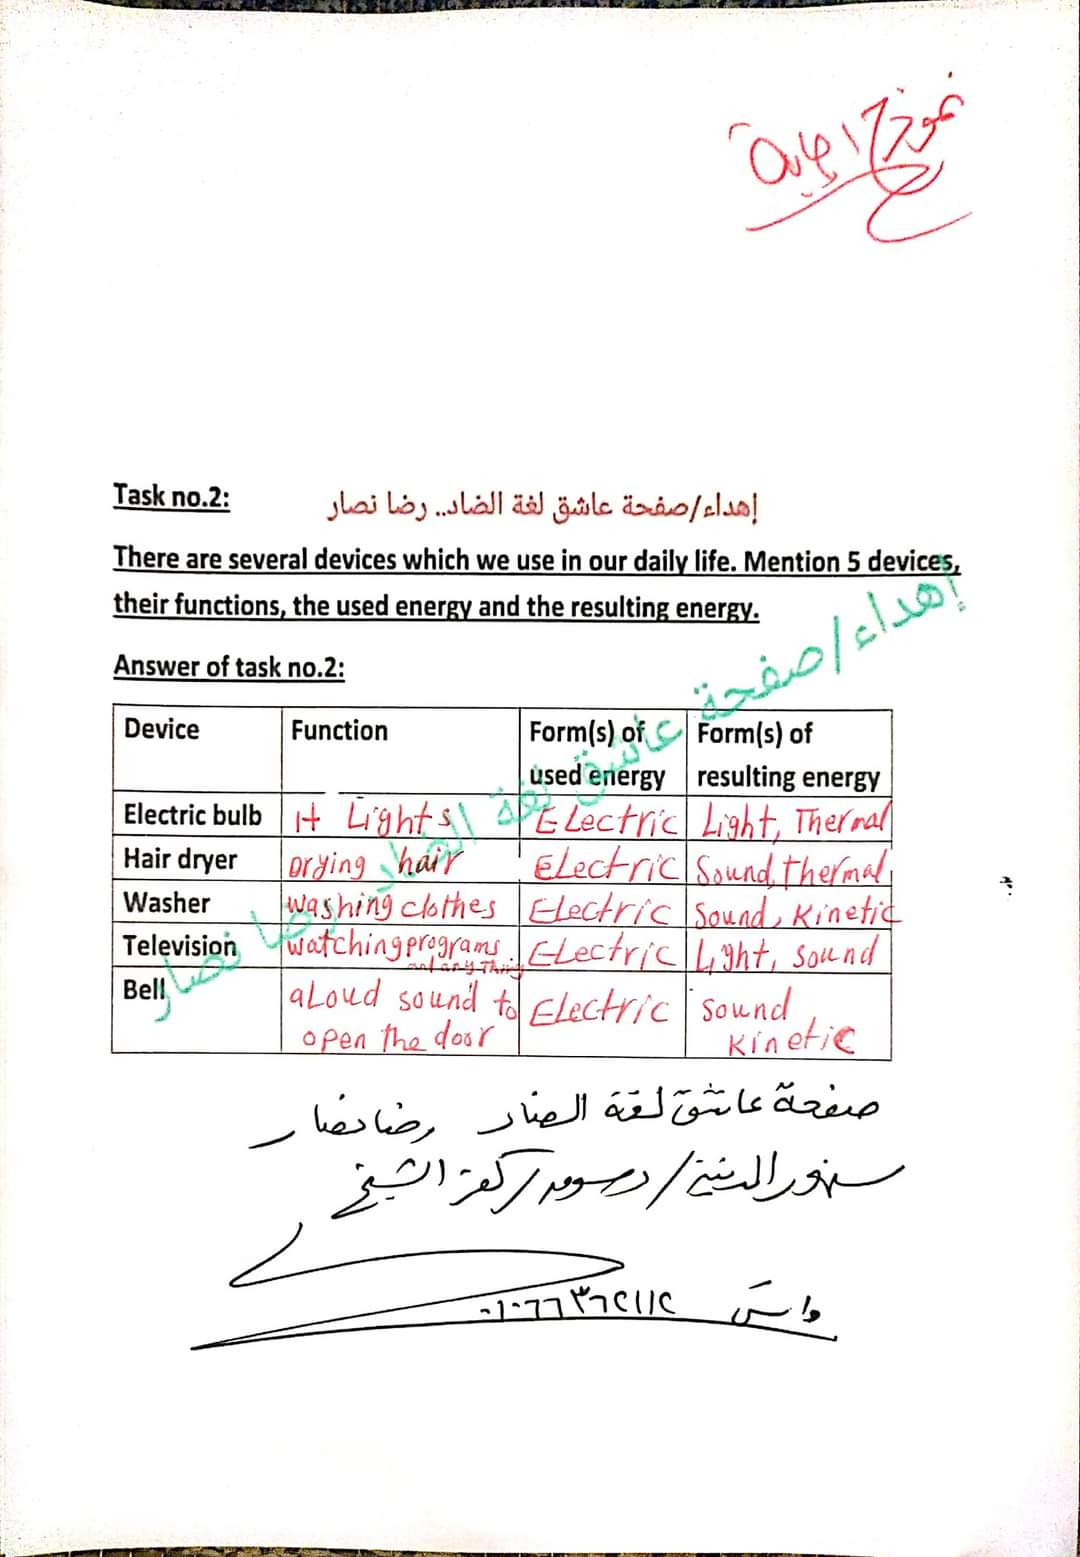 نموذج اجابة
Task no.2:
إهداء/صفحة عاشق لغة الضاد.. رضا نصار
There are several devices which we use in our daily life. Mention 5 devices,
their functions, the used energy and the resulting energy.
إهداء/صفحة عاشق لغة الضاد رضا نصار
Answer of task no.2:
Device Function Form(s) of used energy Form(s) of resulting energy
Electric bulb It Lights Electric Light, Thermal
Hair dryer Drying hair Electric Sound, thermal
Washer washing clothes Electric Sound, Kinetic
Television watching programs and any Thing Electric Light, sound
Bell a Loud sound to open the door Electric sound, Kinetic
صفحة عاشق لغة الضاد رضا نصار
سنهور المدينة/دسوق/كفر الشيخ
واتس ٠١٠٦٦٣٦٢١١٢